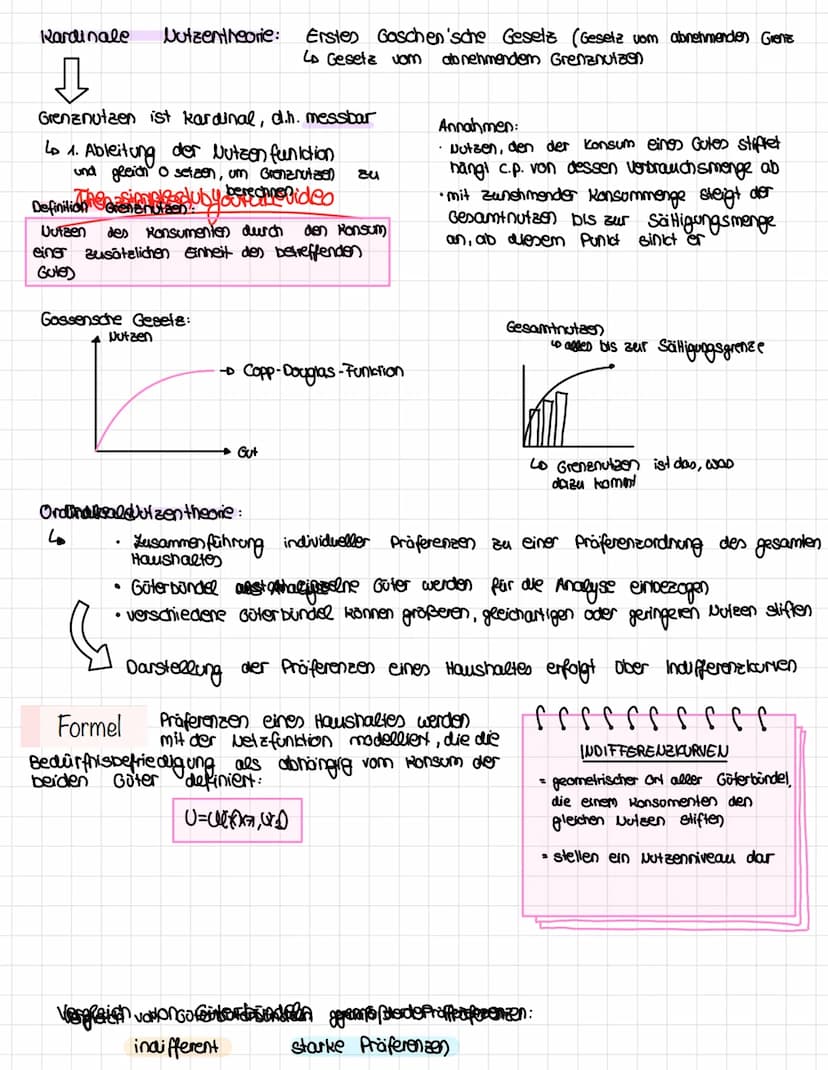 Kardinale Nutzentheorie: Erstes Goschen'sche Gesetz (Gesetz vom abnehmenden Grenz
↳ Gesetz vom abnehmendem Grenznutzen
Grenznutzen ist kardinal, d.h. messbar
↳ 1. Ableitung der Nutzenfunktion
und gleich 0 setzen, um Grenznutzen zu
berechnen
Definition Grenznutzen:
Nutzen des Konsumenten durch den Konsum
einer zusätzlichen Einheit des betreffenden
Gutes
Annahmen:
· Nutzen, den der Konsum eines Gutes stiftet
hängt c.p. von dessen Verbrauchsmenge ab
· mit zunehmender Konsummenge steigt der
Gesamtnutzen bis zur Sättigungsmenge
an, ab diesem Punkt sinkt er
Gossensche Gesetz:
Nutzen
→ Copp-Douglas-Funktion
Gut
Gesamtnutzen
↳ alles bis zur Sättigungsgrenze
↳ Grenznutzen ist das, was
dazu kommt
Nutzentheorie:
↳ · Zusammenführung individueller Präferenzen zu einer Präferenzordnung des gesamten
Haushaltes
· Güterbündel Güter werden für die Analyse einbezogen
· verschiedene Güterbündel können größeren, gleichartigen oder geringeren Nutzen stiften
Darstellung der Präferenzen eines Haushaltes erfolgt über Indifferenzkurven
Formel
Präferenzen eines Haushaltes werden
mit der Netzfunktion modelliert, die die
Bedürfnisbefriedigung als abhängig vom Konsum der
beiden Güter definiert:
INDIFFERENZKURVEN
= geometrischer Ort aller Güterbündel,
die einem Konsumenten den
gleichen Nutzen stiften
= stellen ein Nutzenniveau dar
Vergleich von Güterbündeln
indifferent starke Präferenzen